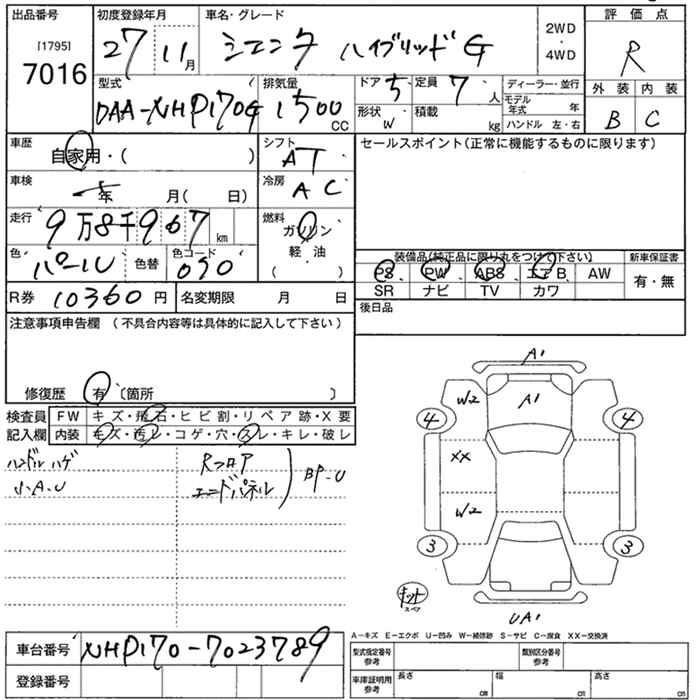 出品番号
[1795]
7016
初度登録年月
27 11月
車名・グレード
シエンタ ハイブリッド G
2WD
・
4WD
評価点
R
外装 内装
B C
型式
DAA-NHP170G
排気量
1500 CC
ドア 5 定員 7 人
形状 W 積載 kg
ディーラー・並行
モデル年式 年
ハンドル 左・右
車歴
自家用・( )
シフト
AT
セールスポイント(正常に機能するものに限ります)
車検
年 月( 日)
冷房
AC
走行
9万8千967km
燃料
ガソリン
軽・油
( )
色
パール
色替
色コード
090
装備品(純正品に限り丸をつけて下さい) 新車保証書
PS PW ABS エアB AW 有・無
SR ナビ TV カワ
R券 10360円 名変期限 月 日
後日品
注意事項申告欄(不具合内容等は具体的に記入して下さい)
修復歴 有 〔箇所 〕
検査員 FW キズ・飛石・ヒビ割・リペア跡・X要
記入欄 内装 キズ・汚レ・コゲ・穴・スレ・キレ・破レ
ハンドル ハゲ Rフロア
小A.U エンドパネル BP-U
A1
W2 A1
4 4
XX
W2
3 3
キット
スペア
UA1
A-キズ E-エクボ U-凹み W-補修跡 S-サビ C-腐食 XX-交換済
車台番号 NHP170-7023789
型式指定番号 参考 類別区分番号 参考
登録番号
車庫証明用 参考 長さ cm 幅 cm 高さ cm